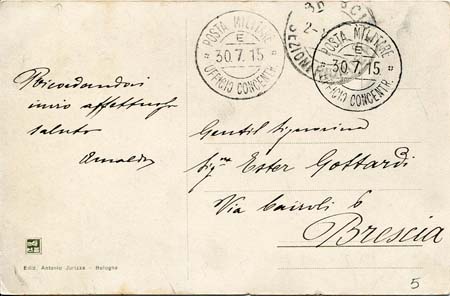 POSTA MILITARE
E
30.7.15
UFFICIO CONCENTR.
POSTA MILITARE
E
30.7.15
UFFICIO CONCENTR.
Ricordandoci
invio affettuosi
saluti
Arnaldo
Gentil Signorina
Sig.na Ester Gottardi
Via Cairoli 6
Brescia
Ediz. Antonio Jurizza - Bologna
5